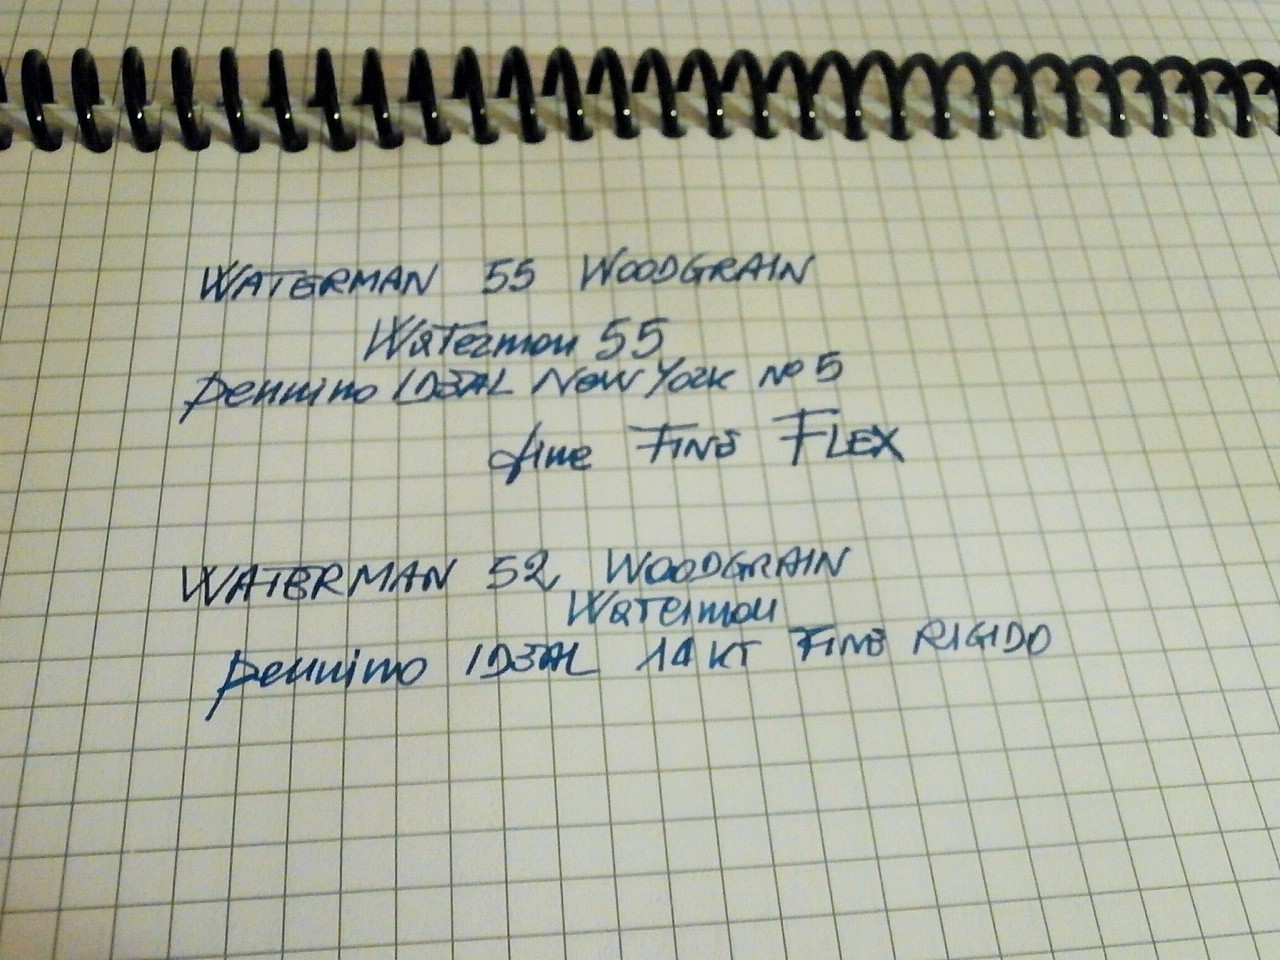 WATERMAN 55 WOODGRAIN
Waterman 55
Pennino IDEAL NEW YORK No 5
fine FINE FLEX
WATERMAN 52 WOODGRAIN
Waterman
Pennino IDEAL 14 KT FINE RIGIDO